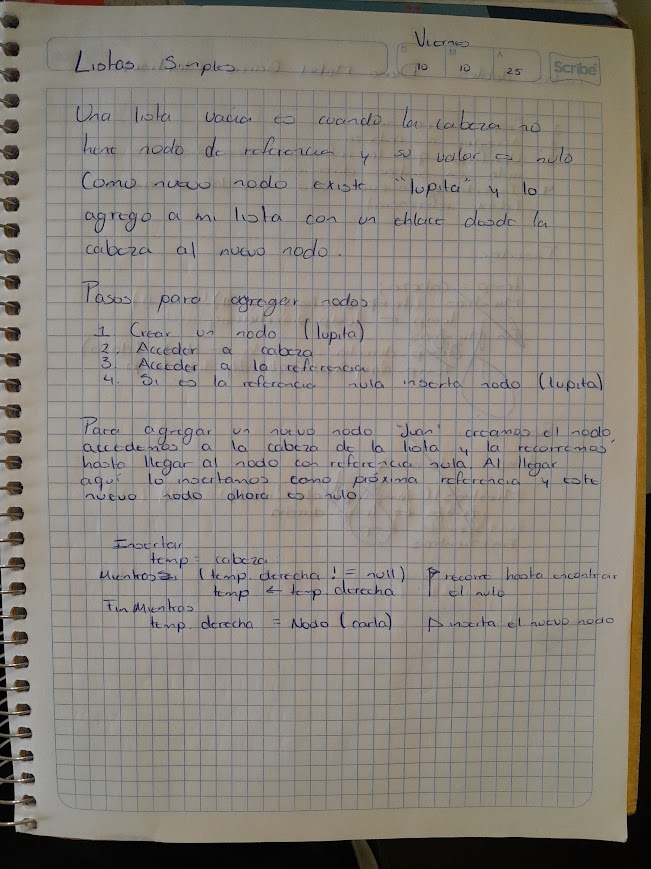 Viernes
Listas Simples
D M A
10 10 25
Scribe
Una lista vacia es cuando la cabeza no
tiene nodo de referencia y su valor es nulo
Como nuevo nodo existe "lupita" y lo
agrego a mi lista con un enlace desde la
cabeza al nuevo nodo.
Pasos para agregar nodos
1. Crear un nodo (lupita)
2. Acceder a cabeza
3. Acceder a la referencia
4. Si es la referencia nula inserta nodo (lupita)
Para agregar un nuevo nodo "Juan" creamos el nodo,
accedemos a la cabeza de la lista y la recorremos
hasta llegar al nodo con referencia nula. Al llegar
aquí lo insertamos como próxima referencia y este
nuevo nodo ahora es nulo.
Insertar
temp = cabeza
Mientras (temp. derecha != null) recorre hasta encontrar
temp ← temp. derecha el nulo
Fin Mientras
temp. derecha = Nodo (carla) ▷ inserta el nuevo nodo